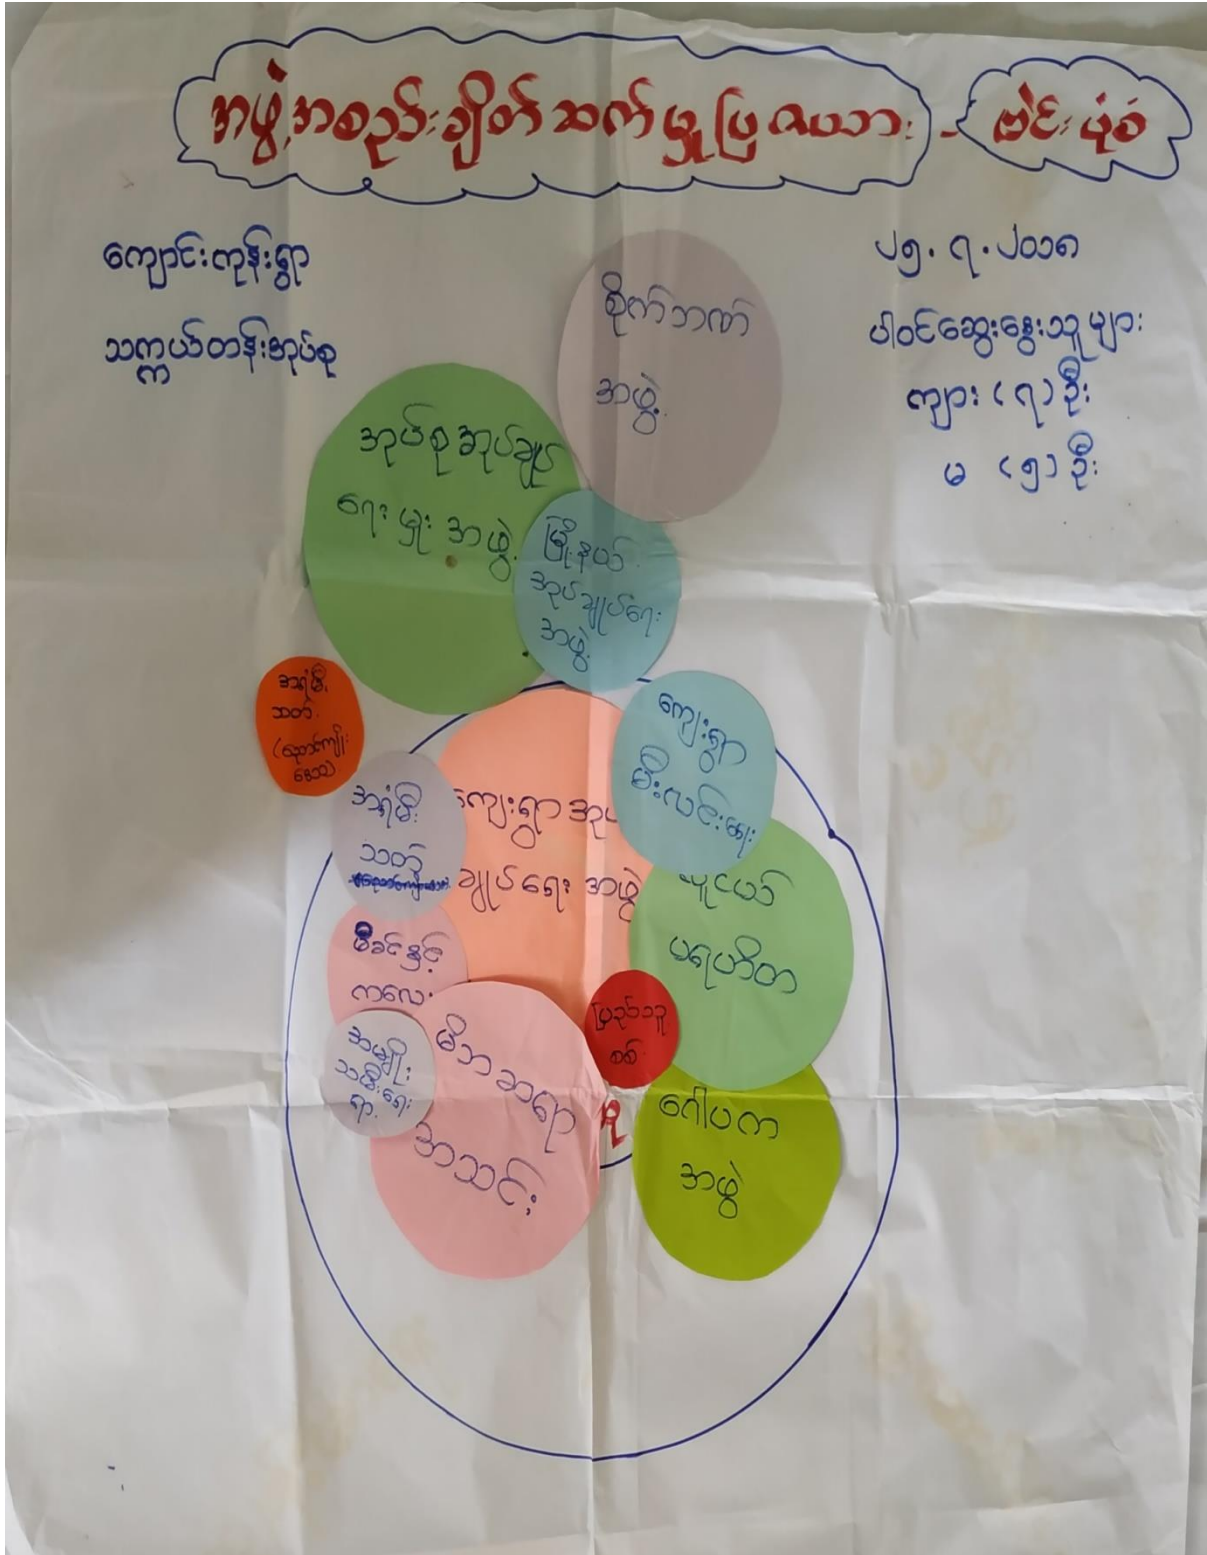 အဖွဲ့အစည်းချိတ်ဆက်မှုပြဇယား - ဗင်းပုံစံ
ကျောင်းကုန်းရွာ
သက္ကယ်တန်းအုပ်စု
၂၅.၇.၂၀၁၈
ပါဝင်ဆွေးနွေးသူများ
ကျား (၇) ဦး
မ (၅) ဦး
စိုက်ဘဏ်
အဖွဲ့
အုပ်စုအုပ်ချုပ်
ရေးမှုးအဖွဲ့
မြို့နယ်
အုပ်ချုပ်ရေး
အဖွဲ့
အရံမီး
သတ်
ကျေးရွာ
မီးလင်းရေး
အရံမီး
သတ်
ကျေးရွာအုပ်
ချုပ်ရေးအဖွဲ့
လူငယ်
ပရဟိတ
မိခင်နှင့်
ကလေး
ပြည်သူ့
စစ်
အမျိုး
သမီးရေး
ရာ
မိဘဆရာ
အသင်း
ဂေါပက
အဖွဲ့